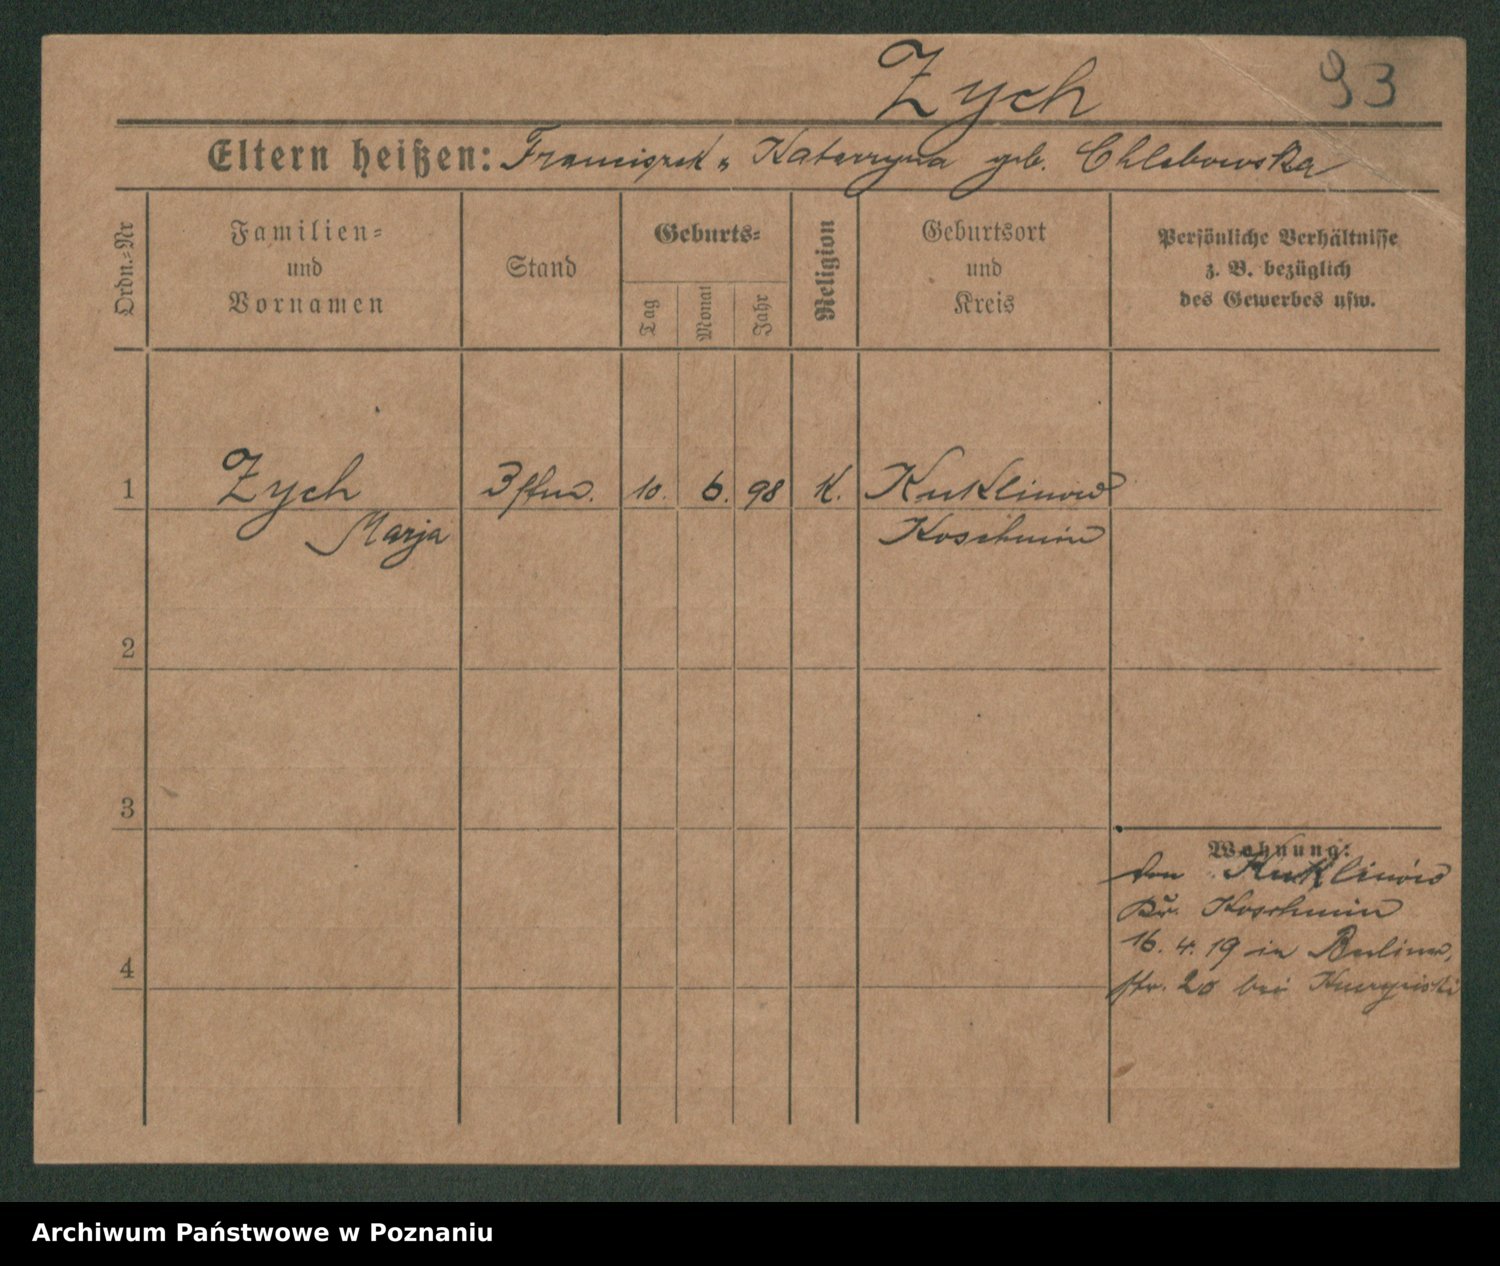 Zych 93
Eltern heißen: Franciszek u Katarzyna geb. Chlebowska
Ordn.=Nr
Familien=
und
Vornamen
Stand
Geburts=
Tag
Monat
Jahr
Religion
Geburtsort
und
Kreis
Persönliche Verhältnisse
z. B. bezüglich
des Gewerbes usw.
1 Zych 10. 6. 98 K. Kuklinow
Marja Koschmin
2
3
Wohnung:
von Kuklinów
Kr. Koschmin
4
16. 4. 19 in Berliner
str. 20 bei
Archiwum Państwowe w Poznaniu